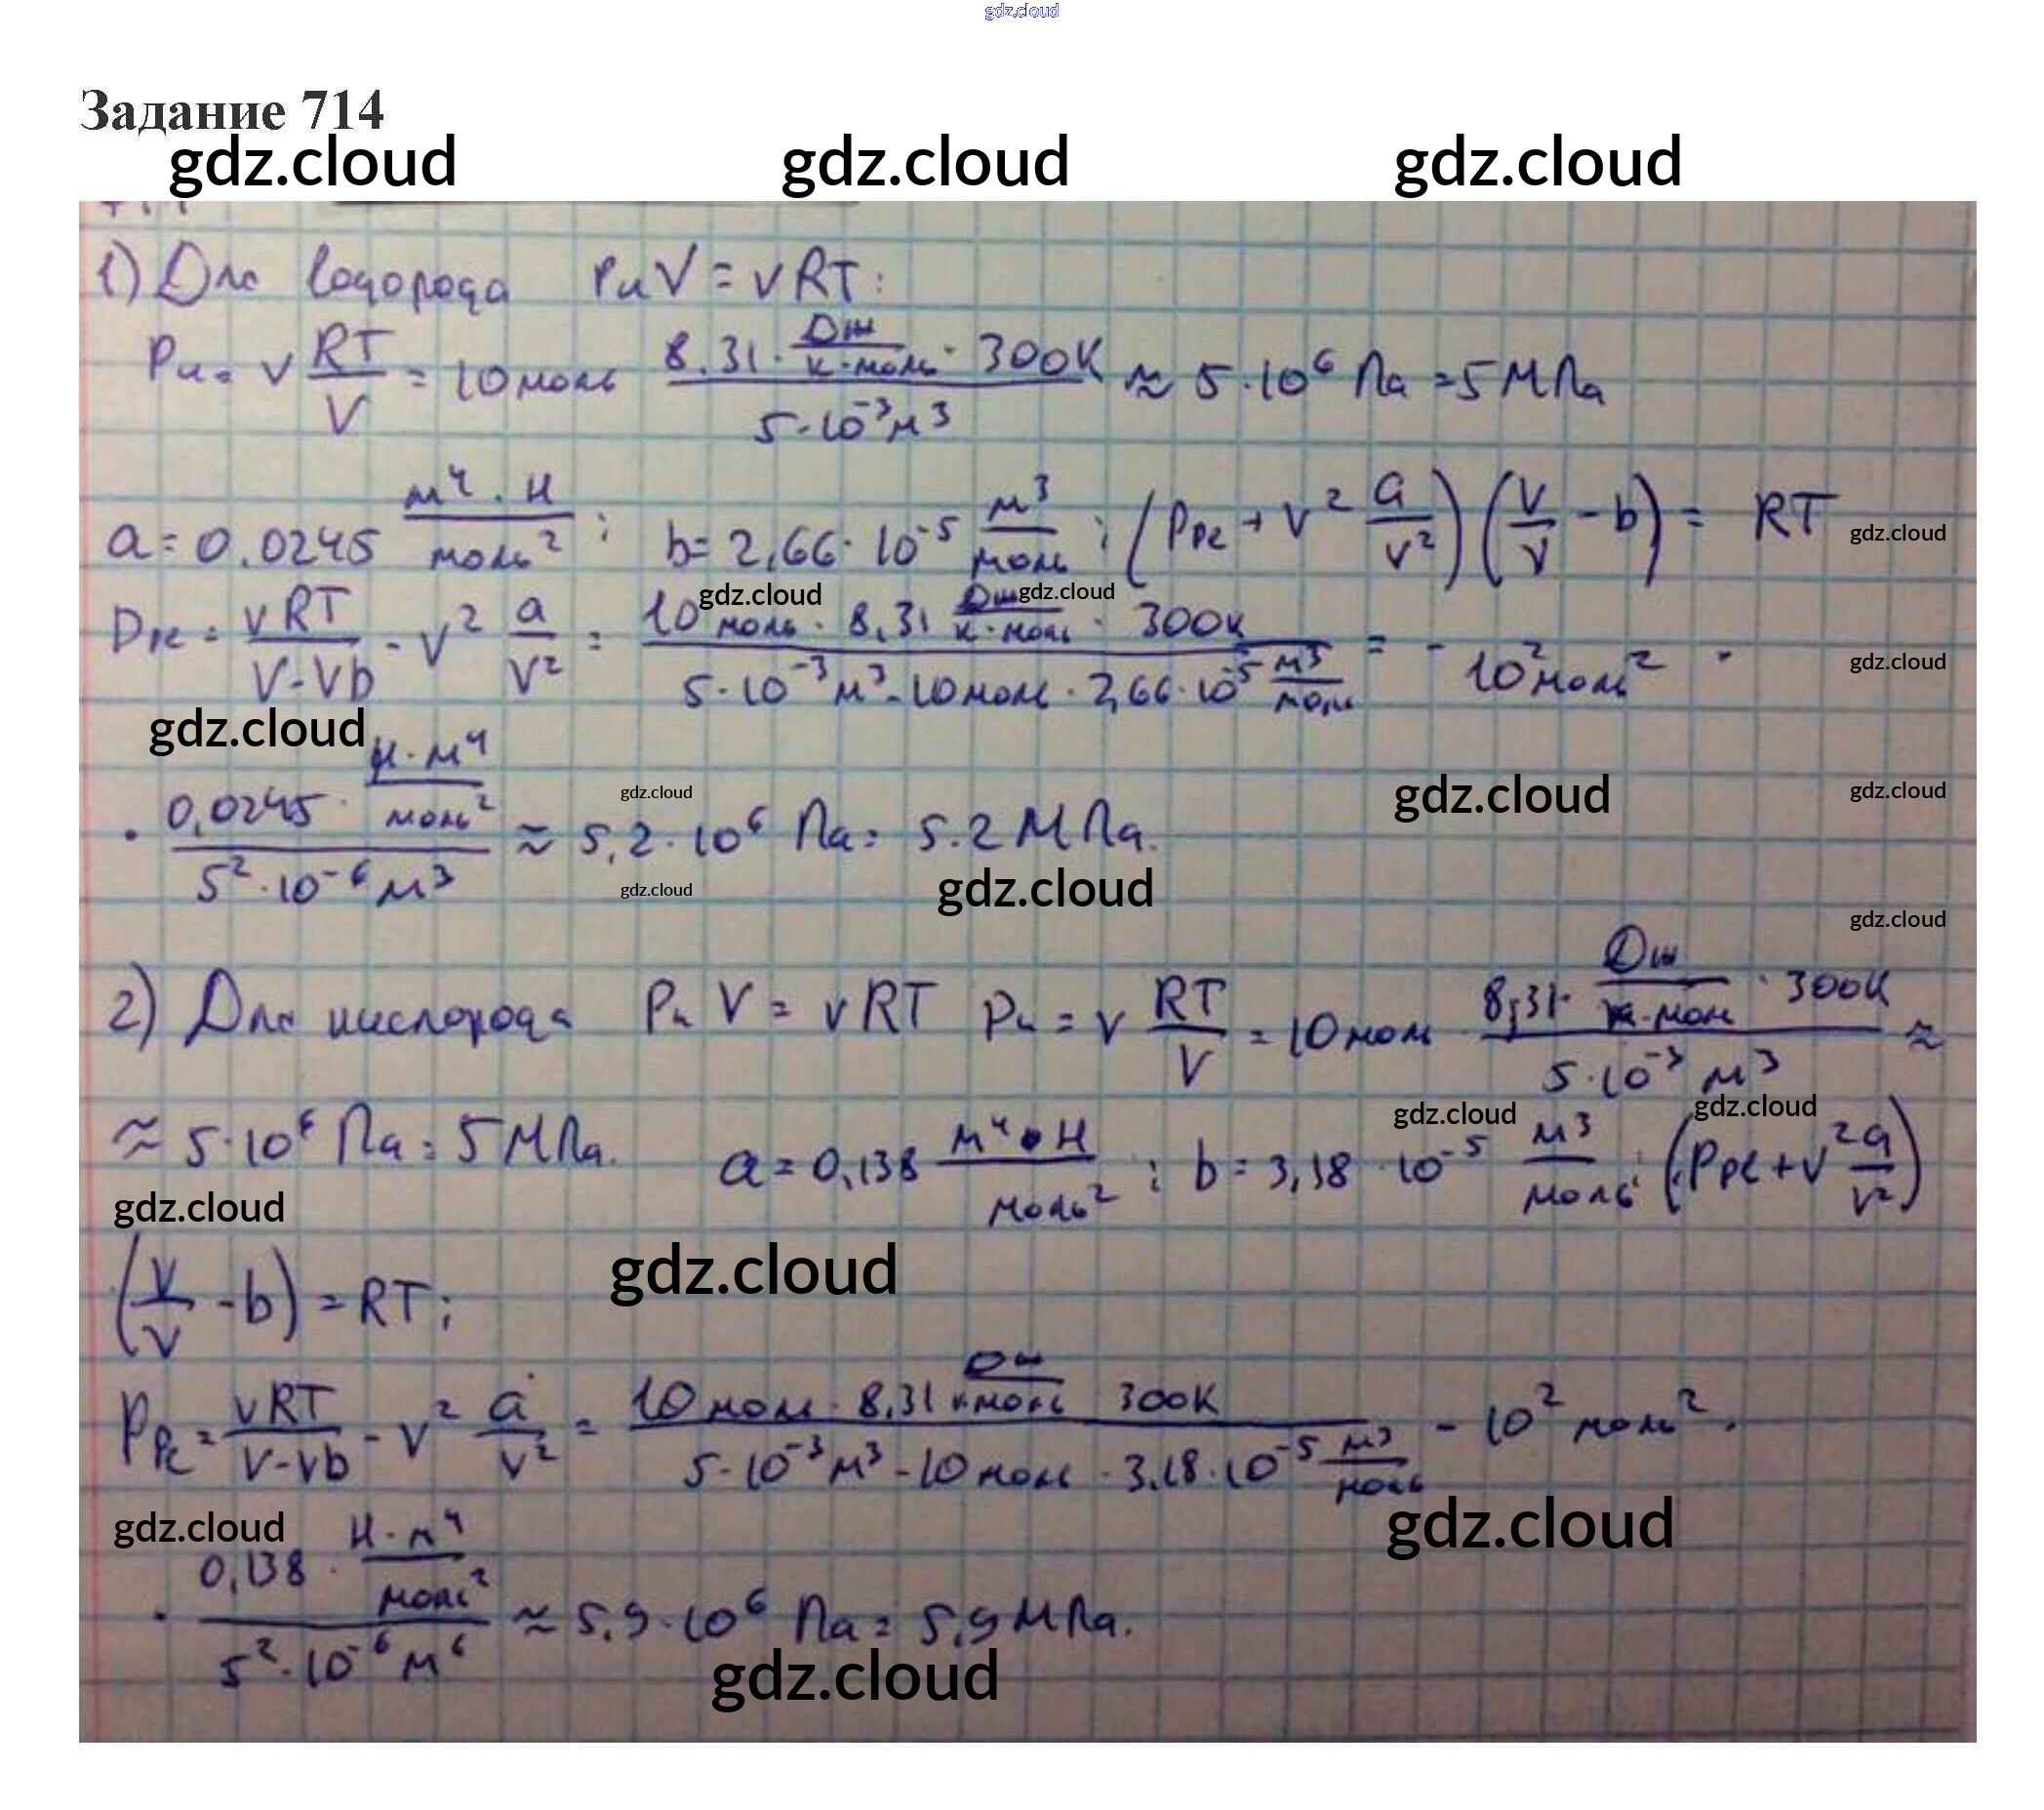 gdz.cloud
Задание 714
gdz.cloud gdz.cloud gdz.cloud
1) Для водорода PиV = νRT:
Pи = ν RT/V = 10 моль 8.31 · Дж/К·моль · 300К / 5·10⁻³ м³ ≈ 5·10⁶ Па = 5 МПа
a = 0.0245 м⁴·Н/моль² ; b = 2,66·10⁻⁵ м³/моль ; (Pре + ν² a/V²)(V/ν - b) = RT gdz.cloud
gdz.cloud gdz.cloud
Pре = νRT/V-νb - ν² a/V² = 10 моль · 8,31 Дж/К·моль · 300К / 5·10⁻³ м³ - 10 моль · 2,66·10⁻⁵ м³/моль = - 10² моль² · gdz.cloud
gdz.cloud
· 0,0245 · Н·м⁴/моль² / 5²·10⁻⁶ м³ ≈ 5,2·10⁶ Па = 5.2 МПа.
gdz.cloud gdz.cloud gdz.cloud
gdz.cloud gdz.cloud
gdz.cloud
2) Для кислорода Pи V = νRT Pи = ν RT/V = 10 моль 8,31· Дж/К·моль · 300К / 5·10⁻³ м³ ≈
gdz.cloud gdz.cloud
≈ 5·10⁶ Па = 5 МПа. a = 0,138 м⁴·Н/моль² ; b = 3,18·10⁻⁵ м³/моль ; (Pре + ν² a/V²)
gdz.cloud
(V/ν - b) = RT; gdz.cloud
Pре = νRT/V-νb - ν² a/V² = 10 моль · 8,31 Дж/К·моль 300К / 5·10⁻³ м³ - 10 моль · 3,18·10⁻⁵ м³/моль - 10² моль² ·
gdz.cloud gdz.cloud
· 0,138 · Н·м⁴/моль² / 5²·10⁻⁶ м⁶ ≈ 5,9·10⁶ Па = 5,9 МПа.
gdz.cloud